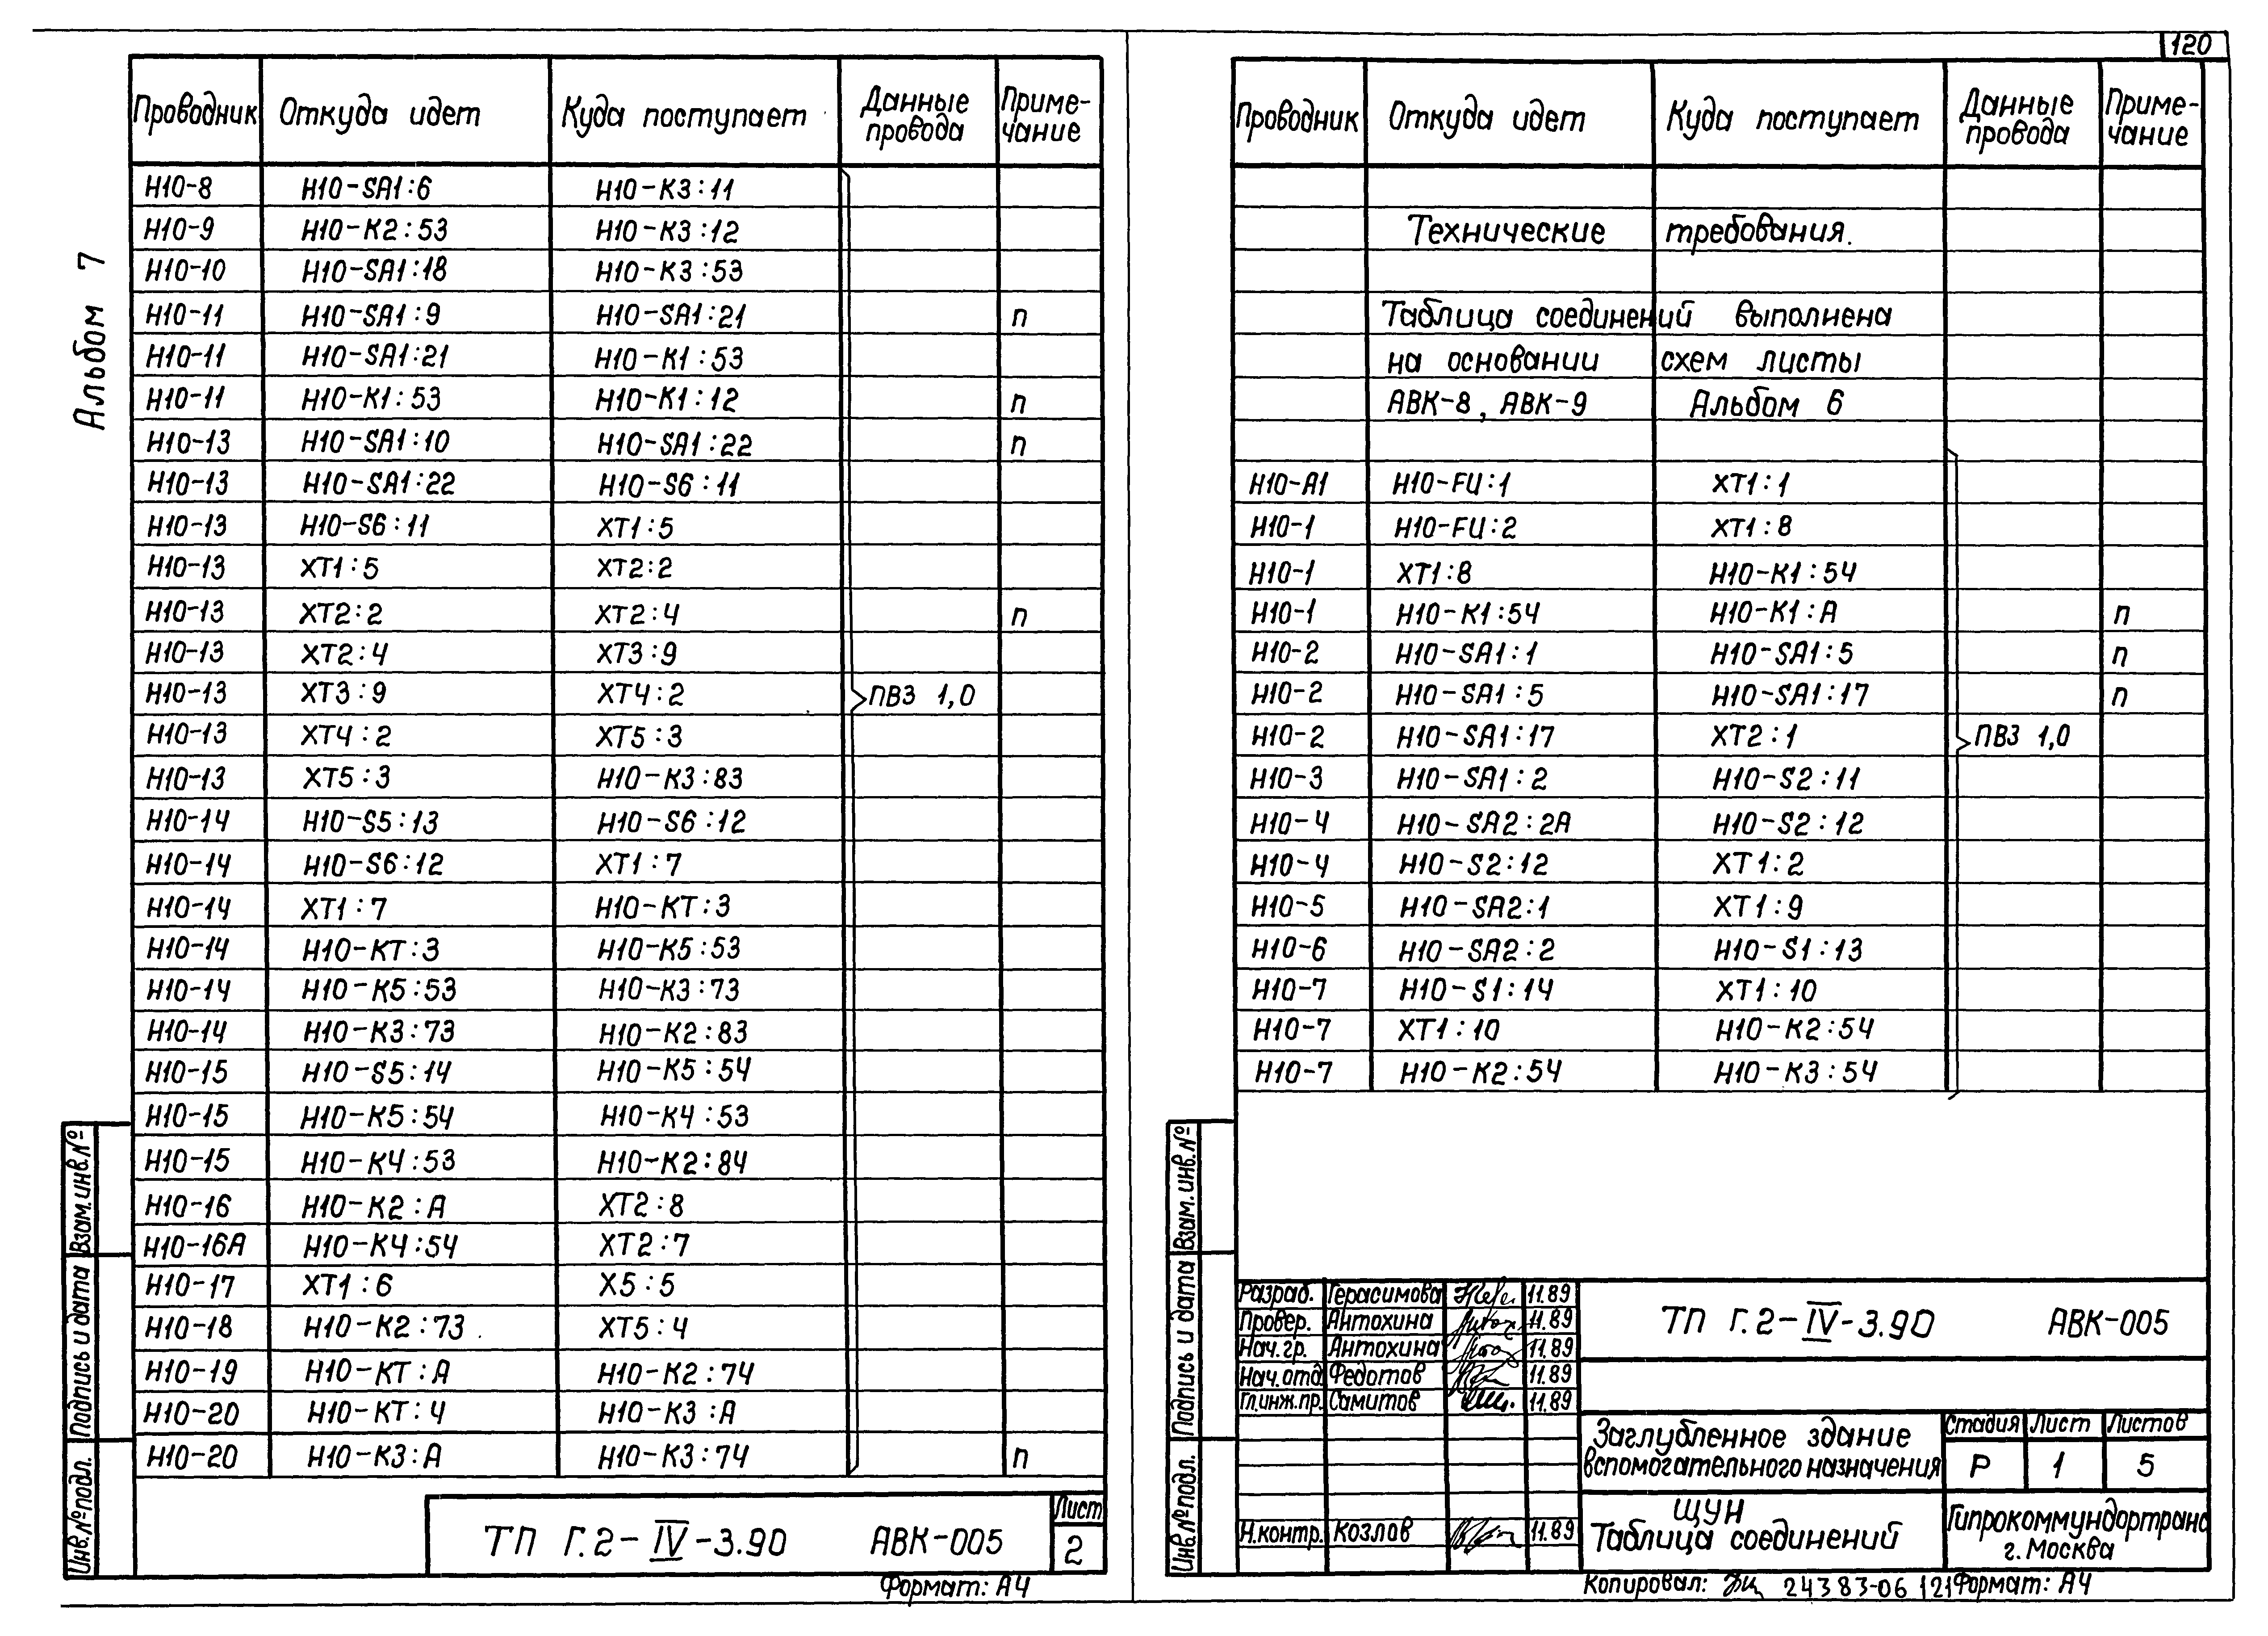 Альбом 7
Проводник Откуда идет Куда поступает Данные провода Приме-чание
Н10-8 Н10-SA1:6 Н10-К3:11
Н10-9 Н10-К2:53 Н10-К3:12
Н10-10 Н10-SA1:18 Н10-К3:53
Н10-11 Н10-SA1:9 Н10-SA1:21 п
Н10-11 Н10-SA1:21 Н10-К1:53
Н10-11 Н10-К1:53 Н10-К1:12 п
Н10-13 Н10-SA1:10 Н10-SA1:22 п
Н10-13 Н10-SA1:22 Н10-S6:11
Н10-13 Н10-S6:11 ХТ1:5
Н10-13 ХТ1:5 ХТ2:2
Н10-13 ХТ2:2 ХТ2:4 п
Н10-13 ХТ2:4 ХТ3:9
Н10-13 ХТ3:9 ХТ4:2 ПВ3 1,0
Н10-13 ХТ4:2 ХТ5:3
Н10-13 ХТ5:3 Н10-К3:83
Н10-14 Н10-S5:13 Н10-S6:12
Н10-14 Н10-S6:12 ХТ1:7
Н10-14 ХТ1:7 Н10-КТ:3
Н10-14 Н10-КТ:3 Н10-К5:53
Н10-14 Н10-К5:53 Н10-К3:73
Н10-14 Н10-К3:73 Н10-К2:83
Н10-15 Н10-S5:14 Н10-К5:54
Н10-15 Н10-К5:54 Н10-К4:53
Н10-15 Н10-К4:53 Н10-К2:84
Н10-16 Н10-К2:А ХТ2:8
Н10-16А Н10-К4:54 ХТ2:7
Н10-17 ХТ1:6 Х5:5
Н10-18 Н10-К2:73 ХТ5:4
Н10-19 Н10-КТ:А Н10-К2:74
Н10-20 Н10-КТ:4 Н10-К3:А
Н10-20 Н10-К3:А Н10-К3:74 п
Взам.инв.№
Подпись и дата
Инв.№подл.
ТП Г.2-IV-3.90 АВК-005
Лист
2
Формат: А4
120
Проводник Откуда идет Куда поступает Данные провода Приме-чание
Технические требования.
Таблица соединений выполнена
на основании схем листы
АВК-8, АВК-9 Альбом 6
Н10-А1 Н10-FU:1 ХТ1:1
Н10-1 Н10-FU:2 ХТ1:8
Н10-1 ХТ1:8 Н10-К1:54
Н10-1 Н10-К1:54 Н10-К1:А п
Н10-2 Н10-SA1:1 Н10-SA1:5 п
Н10-2 Н10-SA1:5 Н10-SA1:17 п
Н10-2 Н10-SA1:17 ХТ2:1 ПВ3 1,0
Н10-3 Н10-SA1:2 Н10-S2:11
Н10-4 Н10-SA2:2А Н10-S2:12
Н10-4 Н10-S2:12 ХТ1:2
Н10-5 Н10-SA2:1 ХТ1:9
Н10-6 Н10-SA2:2 Н10-S1:13
Н10-7 Н10-S1:14 ХТ1:10
Н10-7 ХТ1:10 Н10-К2:54
Н10-7 Н10-К2:54 Н10-К3:54
Взам.инв.№
Подпись и дата
Инв.№подл.
Разраб. Герасимова 11.89
Провер. Антохина 11.89
Нач.гр. Антохина 11.89
Нач.отд. Федотов 11.89
Гл.инж.пр. Самитов 11.89
Н.контр. Козлов 11.89
ТП Г.2-IV-3.90 АВК-005
Заглубленное здание
вспомогательного назначения
Стадия Лист Листов
Р 1 5
ЩУН
Таблица соединений
Гипрокоммундортранс
г.Москва
Копировал: 24383-06 121 Формат: А4